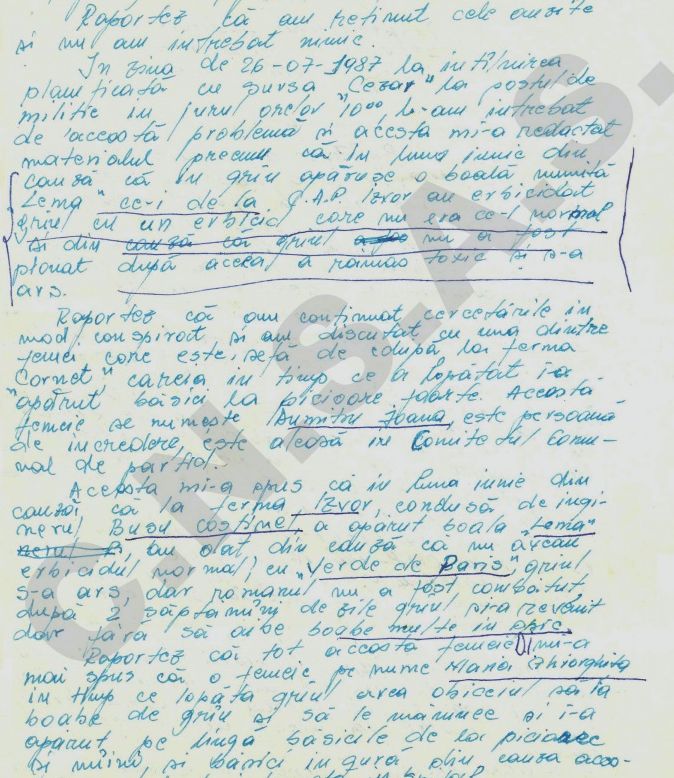 Raportez că am reținut cele auzite
și nu am întrebat nimic.
In ziua de 26-07-1987 la intîlnirea
planificată cu sursa "Cezar" la postul de
miliție in jurul orelor 10⁰⁰ l-am intrebat
de această problemă și acesta mi-a redactat
materialul precum că in luna iunie din
cauză că in grîu apăruse o boală numită
Lema" cei de la C.A.P. Izvor au erbicidat
grîul cu un erbicid care nu era cel normal
și din cauză că grîul nu a fost
plouat după aceea a rămas toxic și s-a
ars.
Raportez că am continuat cercetările in
mod conspirat și am discutat cu una dintre
femei care este șefă de echipă la ferma
Cornet", careia in timp ce a lopătat i-a
apărut bășici la picioare foarte. Această
femeie se numește Dumitru Ioana, este persoană
de incredere, este aleasă in Comitetul Comu-
nal de partid.
Aceasta mi-a spus că in luna iunie din
cauză că la ferma Izvor, condusă de ingi-
nerul Busu Costinel a apărut boala "Lema"
nerul și, au dat din cauză că nu aveau
erbicidul normal, cu "Verde de Paris" grîul
s-a ars dar romanul nu a fost combătut,
după 2 săptămîni de zile grîul și-a revenit
dar fără să aibe boabe multe in spic.
Raportez că tot această femeie mi-a
mai spus că o femeie pe nume Manea Ghiorghița
in timp ce lopăta grîul avea obiceiul să ia
boabe de grîu și să le mănînce și i-a
apărut pe lîngă bășicile de la picioare
și mîini, și bășici in gură din cauza aces-
C.N.S.A.S.